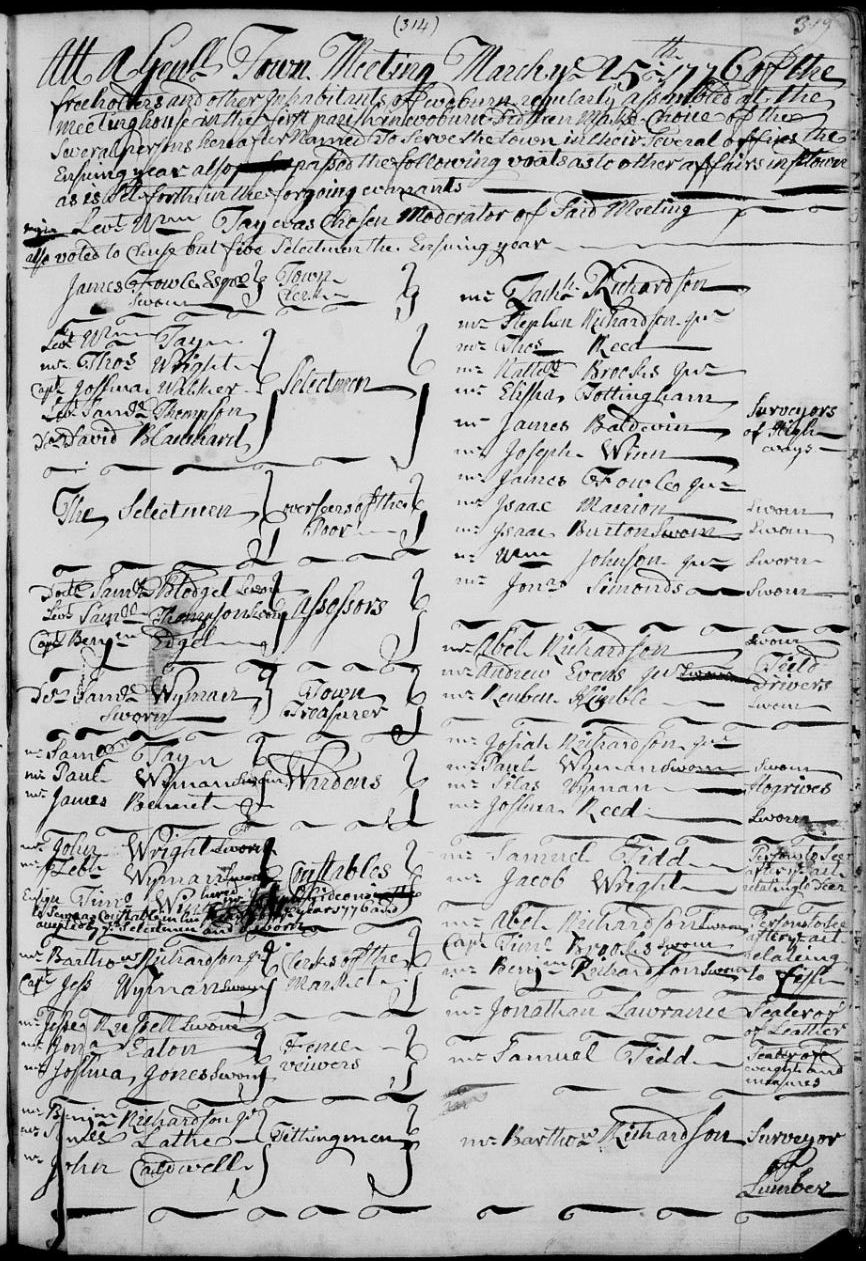 (314)
319
Att A Genll Town Meeting March ye 25th 1776 off the
freeholders and other Inhabitants off woburn regularly assembled at the
meeting house in the first parish in woburn Did then make Choise of the
Several persons hereafter Named To Serve the town in their Several offices the
Ensuing year also passed the following voats as to other affairs in sd town
as is set forth in the forgoing warrants
Levt Wm Tay was Chosen Moderator of Said Meeting
also voted to Chuse but five Selectmen the Ensuing year
James Fowle Esqr Town
Sworn Clerk
Levt Wm Tay
mr Thos Wright
Capt Joshua Walker Selectmen
Levt Samll Thompson
Dn David Blanchard
The Selectmen overseers off the
Poor
Doct Samll Blodget Sworn
Levt Samll Thompson Sworn Assessors
Capt Benjm Edgel
Dn Samll Wyman Town
Sworn Treasurer
mr Samll Tay
mr Paul Wyman Sworn Wardens
mr James Bennet
mr John Wright Sworn
mr Zebh Wyman Sworn Constables
Ensign Timo
to Serve as Constable in his year 1776 and
accepted by ye Selectmen and Sworn
mr Barthow Richardson Jr Clerks off the
Capt Jess Wyman Sworn Market
mr Jesse Russell Sworn
mr Jona Eaton Fence
mr Joshua Jones Sworn veiwers
mr Benjm Richardson Jr
mr James Lathe Tittingmen
mr John Caldwell
mr Zachh Richardson
mr Stephen Richardson Jur
mr Thos Reed
mr Nathll Brooks Jur
mr Elisha Tottingham
mr James Baldwin Surveyors
of High
mr Joseph Winn ways
mr James Fowle Jur
mr Isaac Marion Sworn
mr Isaac Burton Sworn Sworn
mr Wm Johnson Jur Sworn
mr Jonas Simonds Sworn
mr Abel Richardson Sworn
mr Andrew Evens Jur Field
drivers
mr Reuben Kimble Sworn
mr Josiah Richardson Jur
mr Paul Wyman Sworn Sworn
mr Silas Wyman Hogrives
mr Joshua Reed Sworn
mr Samuel Tidd Persons to See
after ye act
mr Jacob Wright relating to Deer
mr Abel Richardson Sworn Persons to See
after ye act
Capt Timo Brooks Sworn relating
mr Benjm Richardson Sworn to fish
mr Jonathan Lawrance Sealer of
of Leather
mr Samuel Tidd Sealer of
weights and
measures
mr Barthow Richardson Surveyor
off
Lumber